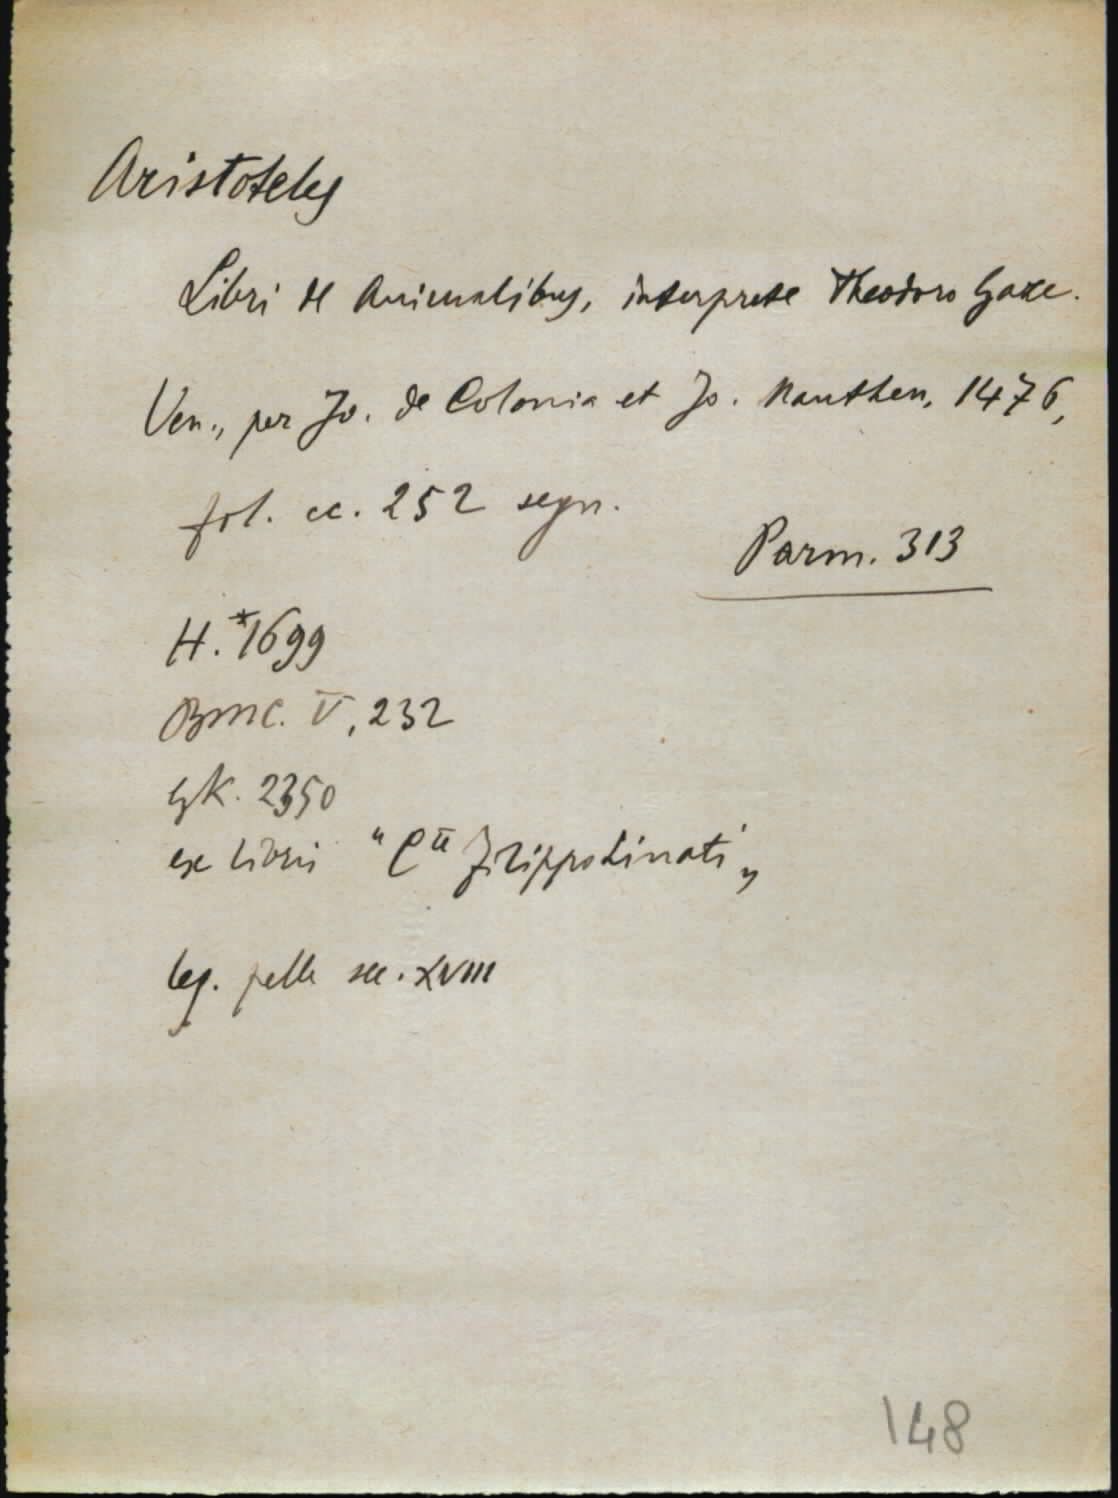 Aristoteles
Libri de Animalibus, interprete Theodoro Gaze.
Ven., per Jo. de Colonia et Jo. Manthen, 1476,
fol. cc. 252 segn.
Parm. 313
H. *1699
BMC. V, 232
GK. 2350
ex libri "C.ti Filippo Linati"
leg. pelle sec. XVIII
148